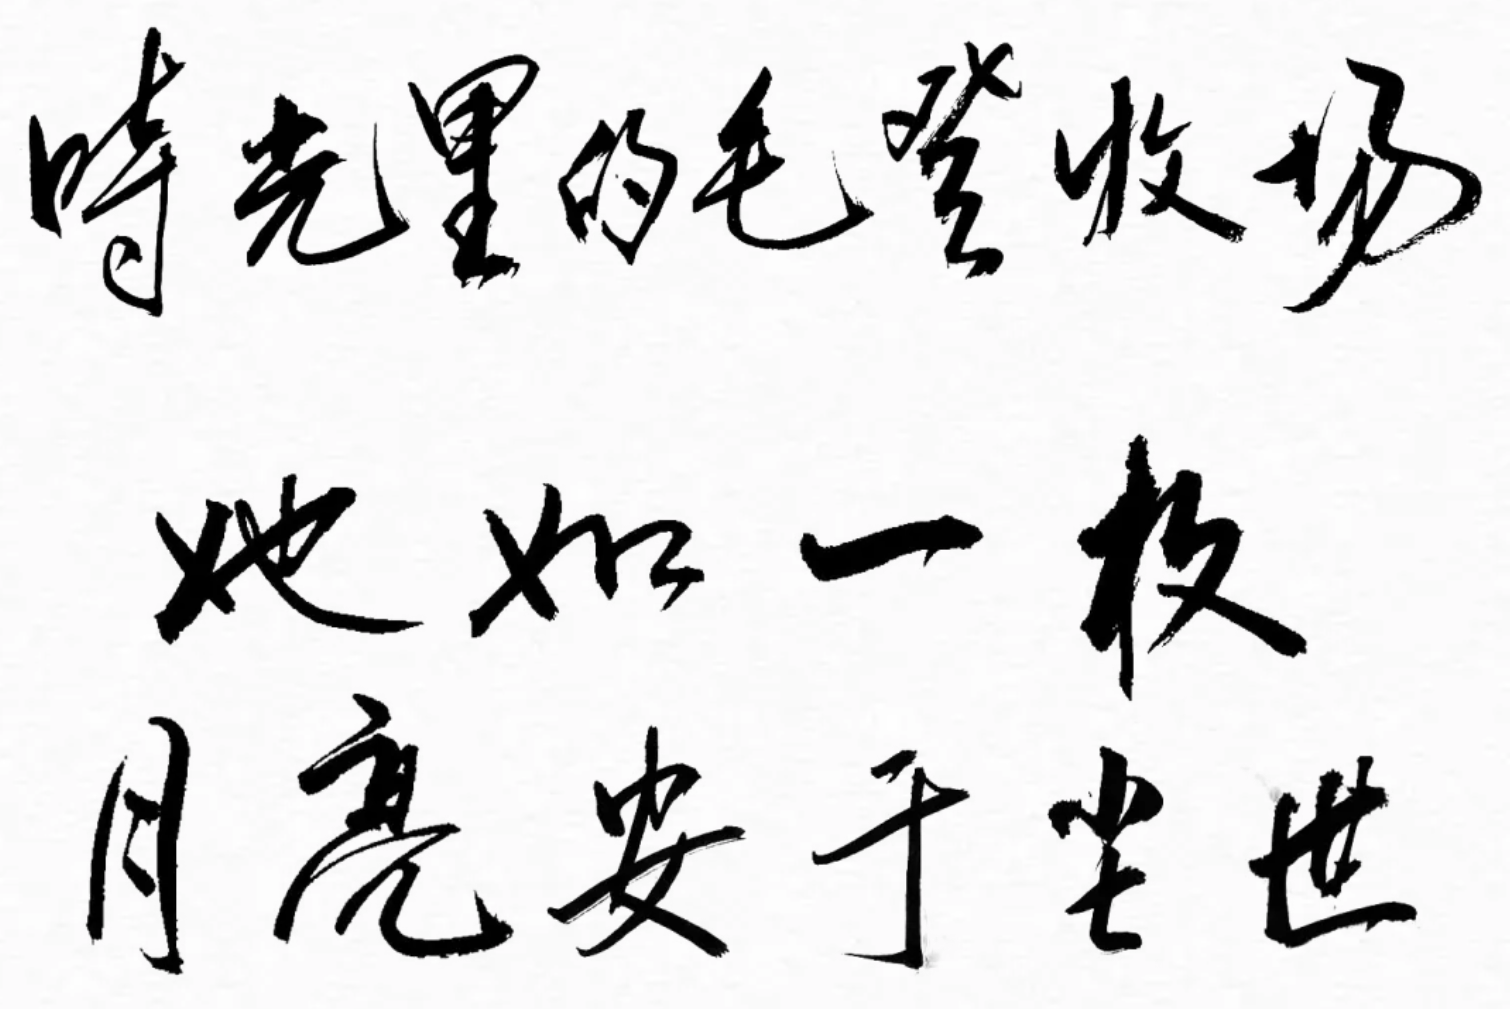 時光里的毛登收场
她如一枚
月亮安于尘世